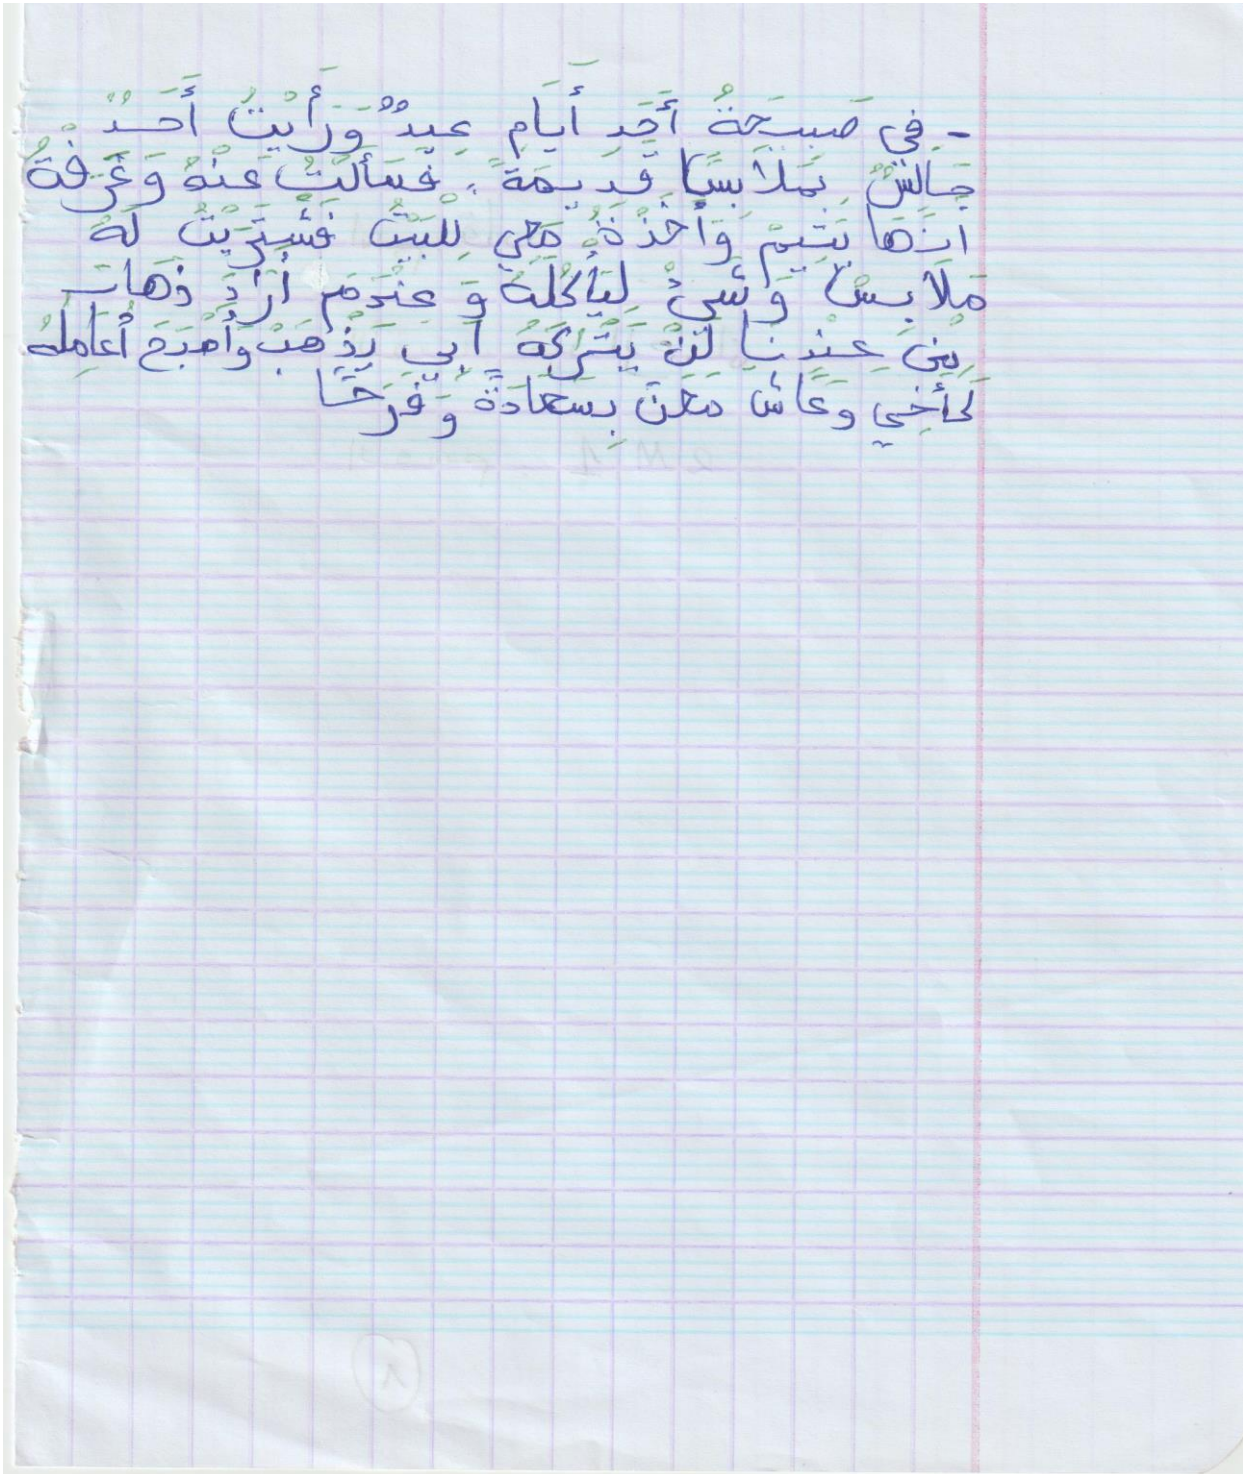 - فِي صَبِيحَةُ أَحَدِ أَيَامِ عِيدٌ وَرَأَيْتُ أَحَدٌ
جَالِسٌ بِمَلَابِسًا قَدِيمَةً. فَسَأَلْتُ عَنْهُ وَعَرَفْةُ
انَهَا يَتِيمْ وَأَخَذْةُ مَعِي لِلْبَيْتْ فَشْتَرَيْتُ لَهُ
مَلَابِسْ وَشَيْءْ لِيَأْكُلَهُ وَ عِنْدَمَ أَرَادَ ذَهَابَ
مِنَ عِنْدِنَا لَنْ يَتْرُكَهُ ابِي يَذْهَبْ وَأَصْبَحَ أُعَامِلُهُ
كَأَخِي وَعَاشَ مَعَنَ بِسَعَادَةً وَفَرَحًا